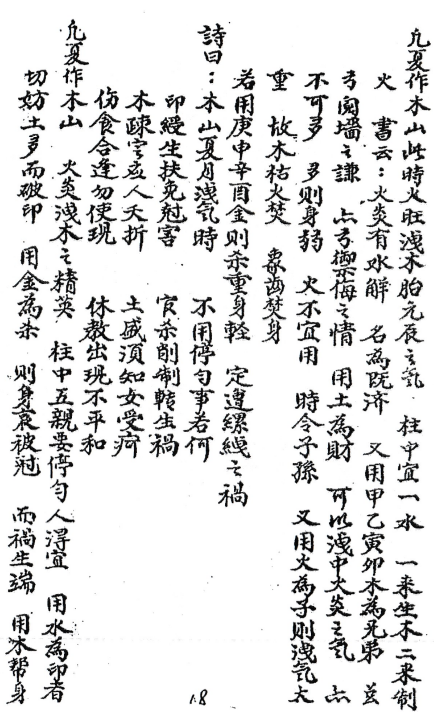 凡夏作木山此時火旺洩木胎元辰之氣 柱中宜一水 一来生木二来制
火 書云：火炎有水解 名為既済 又用甲乙寅卯木為兄弟 並
弓閱墻之謙 亦弓禦侮之情 用土為財 可以洩中火炎之氣 亦
不可多 多則身弱 火不宜用 時令子孫 又用火為子則洩气太
重 故木祜火焚 象齒焚身
若用庚申辛酉金則杀重身軽 定遭縲絏之禍
詩曰：木山夏月洩気時 不用停勻事若何
印綬生扶免冠害 官杀削制轉生禍
木疎定應人夭折 土盛須知女受疴
伤食合逢勿使現 休教出現不平和
凡夏作木山 火炎洩木之精英 柱中五親要停勻人淂宜 用水為印者
切妨土多而破印 用金為杀 則身衰被冠 而禍生端 用木帮身
18